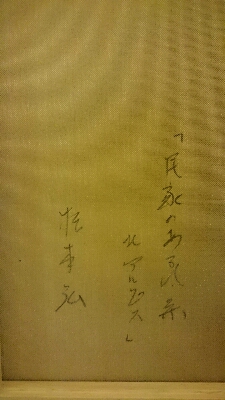 「民家のある風景
北アルプス」
根本弘